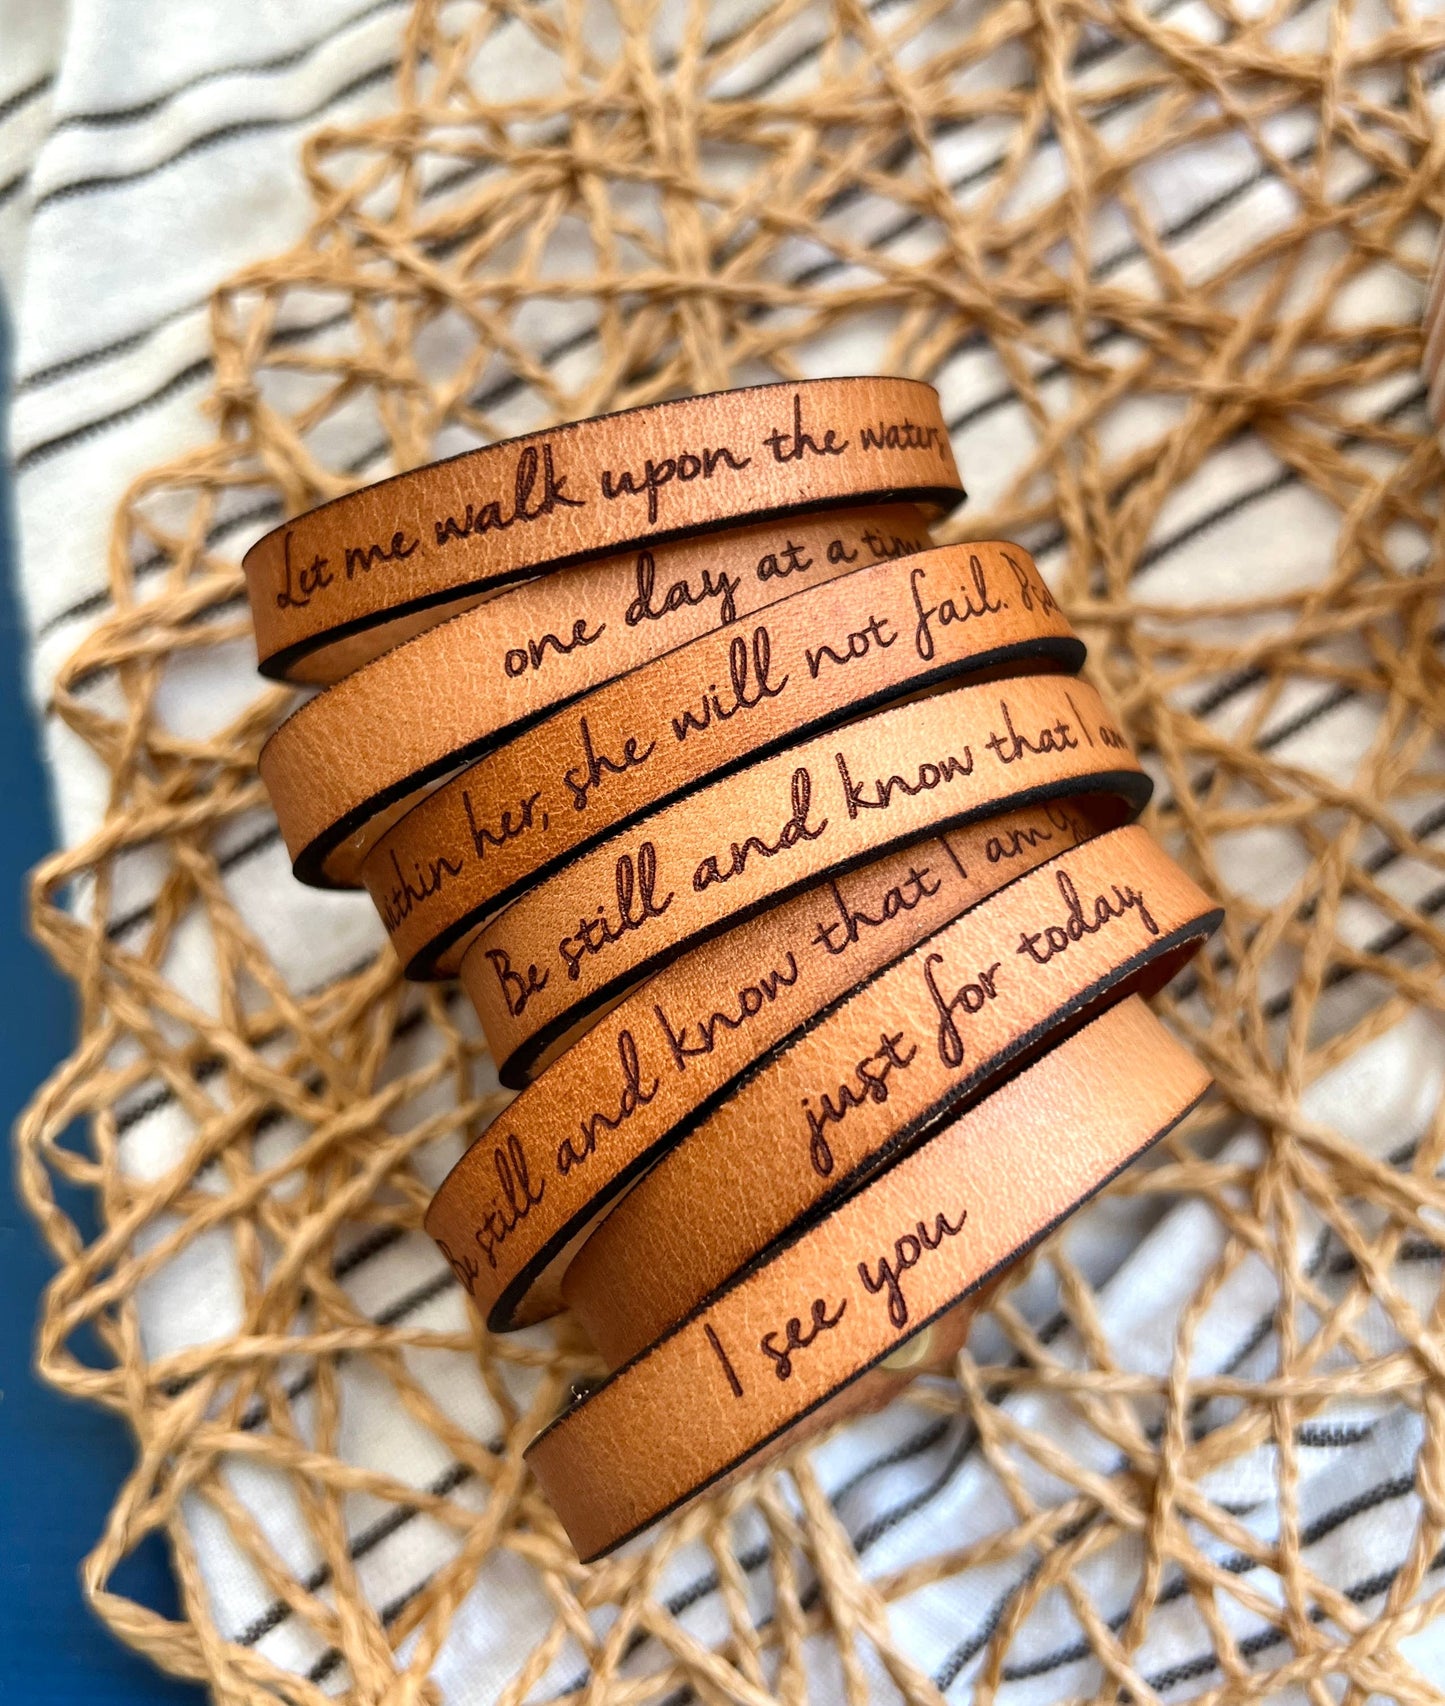 Let me walk upon the waters,
one day at a time
within her, she will not fail.
Be still and know that I am
Be still and know that I am
just for today
I see you